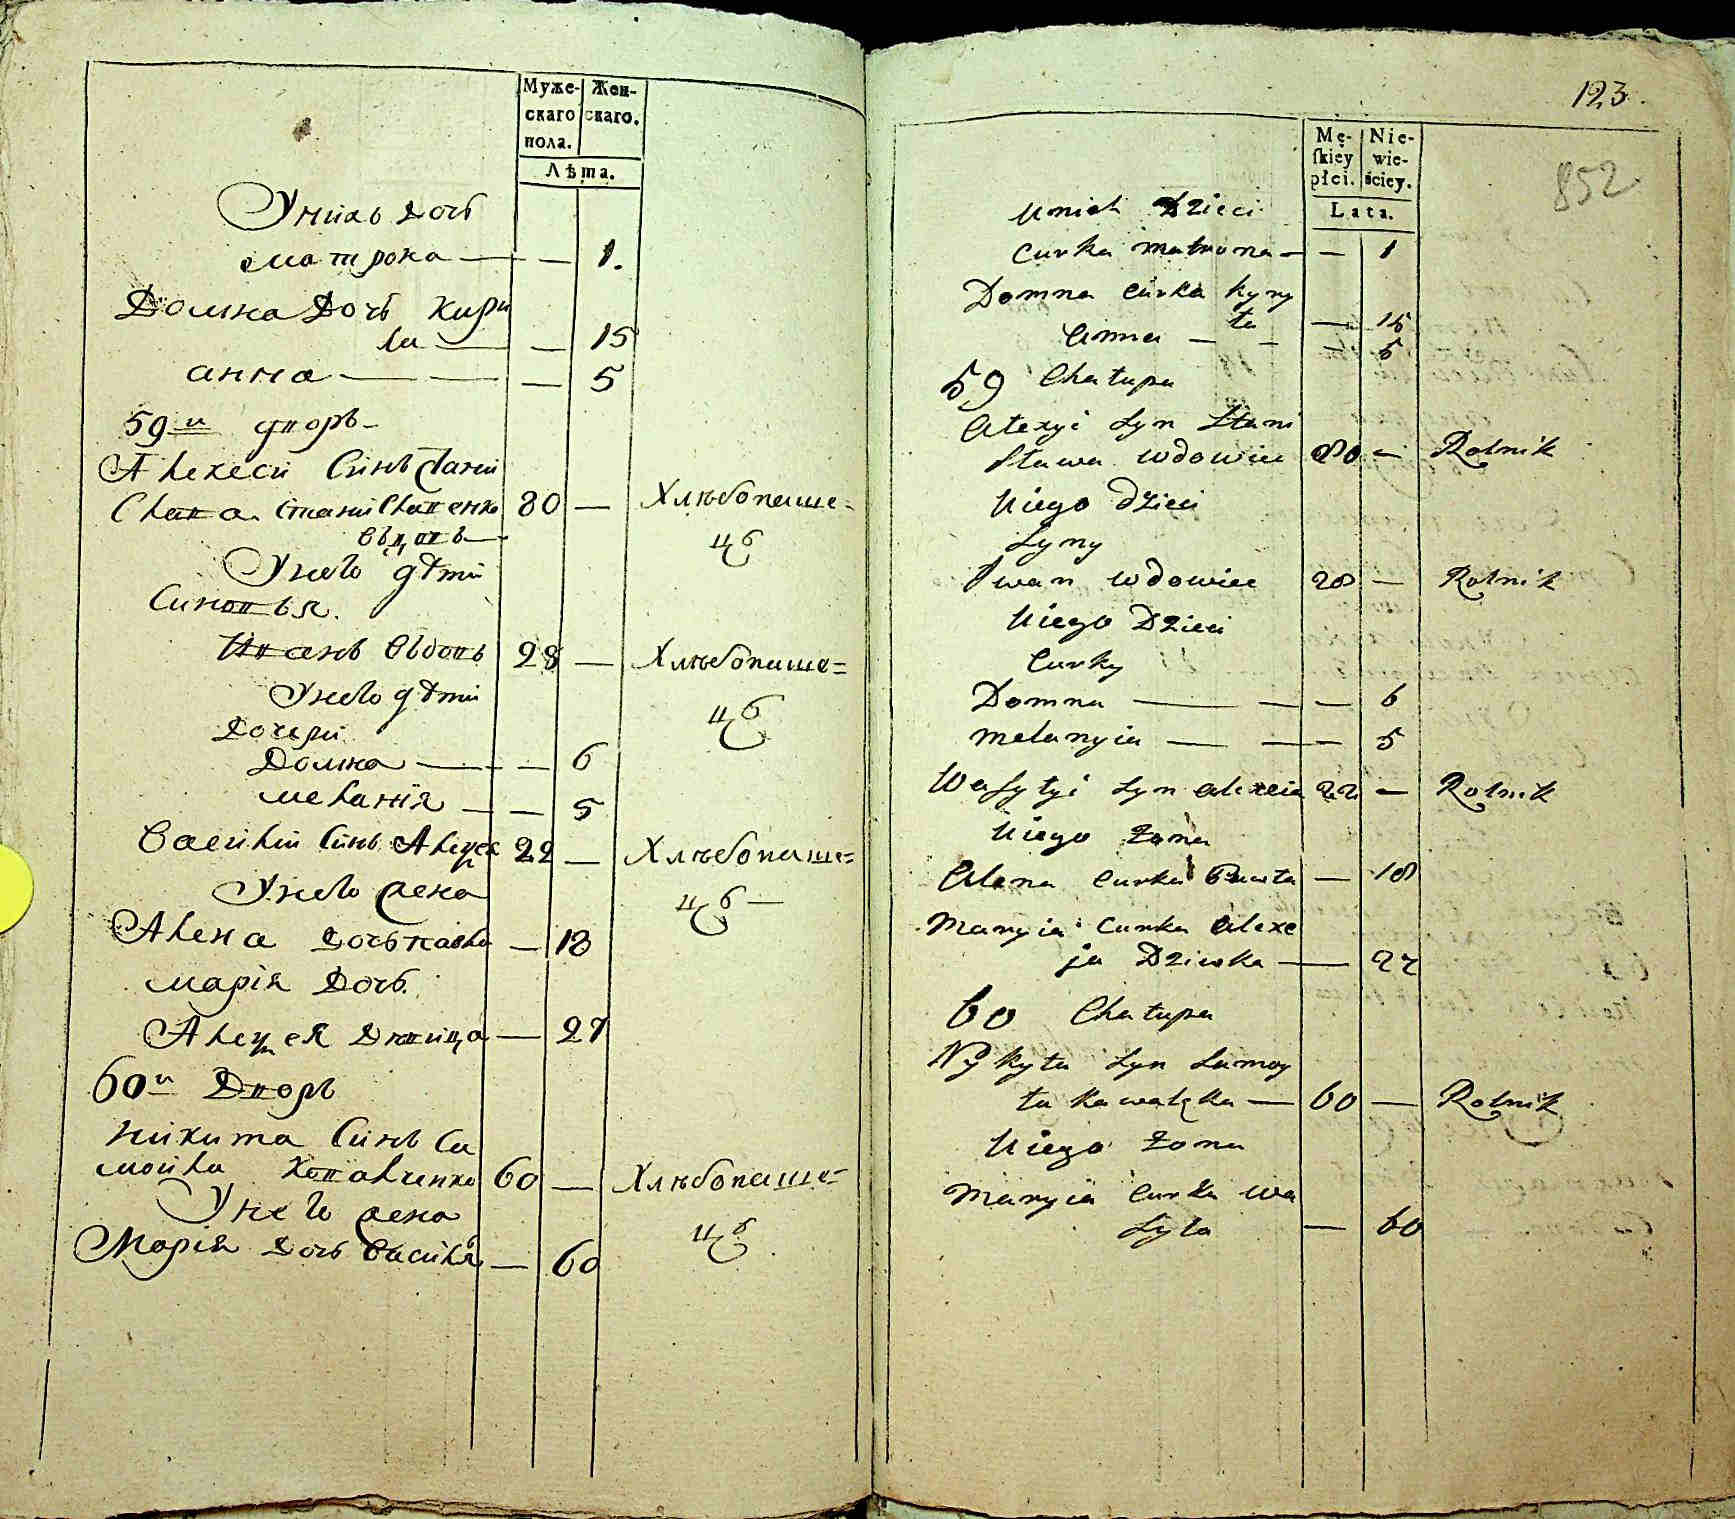 Муже- Жен-
скаго скаго.
пола.
Лѣта.
Унихъ дочь
матрона — — 1.
Домна Дочь Кири
ла — — 15
анна — — 5
59й дворъ
Алексей Синъ Стани
Слава Станиславенко 80 — Хлѣбопаше=
вдовъ — цъ
Унего дѣти
Синовья.
Иванъ вдовъ 28 — Хлѣбопаше=
Унего дѣти цъ
Дочери
Домна — — 6
меланія — — 5
Василій Синъ Алексея 22 — Хлѣбопаше=
Унего жена цъ —
Алена Дочь павла — 18
марія Дочь
Алексея Дѣвица — 27
60й Дворъ
Никита Синъ Са
мойла Ковальчика 60 — Хлѣбопаше=
Унего жена цъ
Марія Дочь Василя — 60
123.
852
Mę- Nie-
ſkiey wie-
płci. ściey.
Lata.
Unich Dzieci
Curka Matrona — — 1
Domna Curka Kyry
ła — 15
Anna — — — 5
59 Chałupa
Alexyi Syn Stani
sława wdowiec 80 — Rolnik
Uiego Dzieci
Syny
Iwan wdowiec 28 — Rolnik
Uiego Dzieci
Curky
Domna — — — 6
Melanyia — — — 5
Wasylyi Syn Alexeia 22 — Rolnik
Uiego żona
Alena Curka Pawła — 18
Maryia Curka Alexe
ja Dziewka — 27
60 Chałupa
Nykyta Syn Samoy
ła — 60 — Rolnik
Uiego żona
Maryia Curka Wa
syla — 60